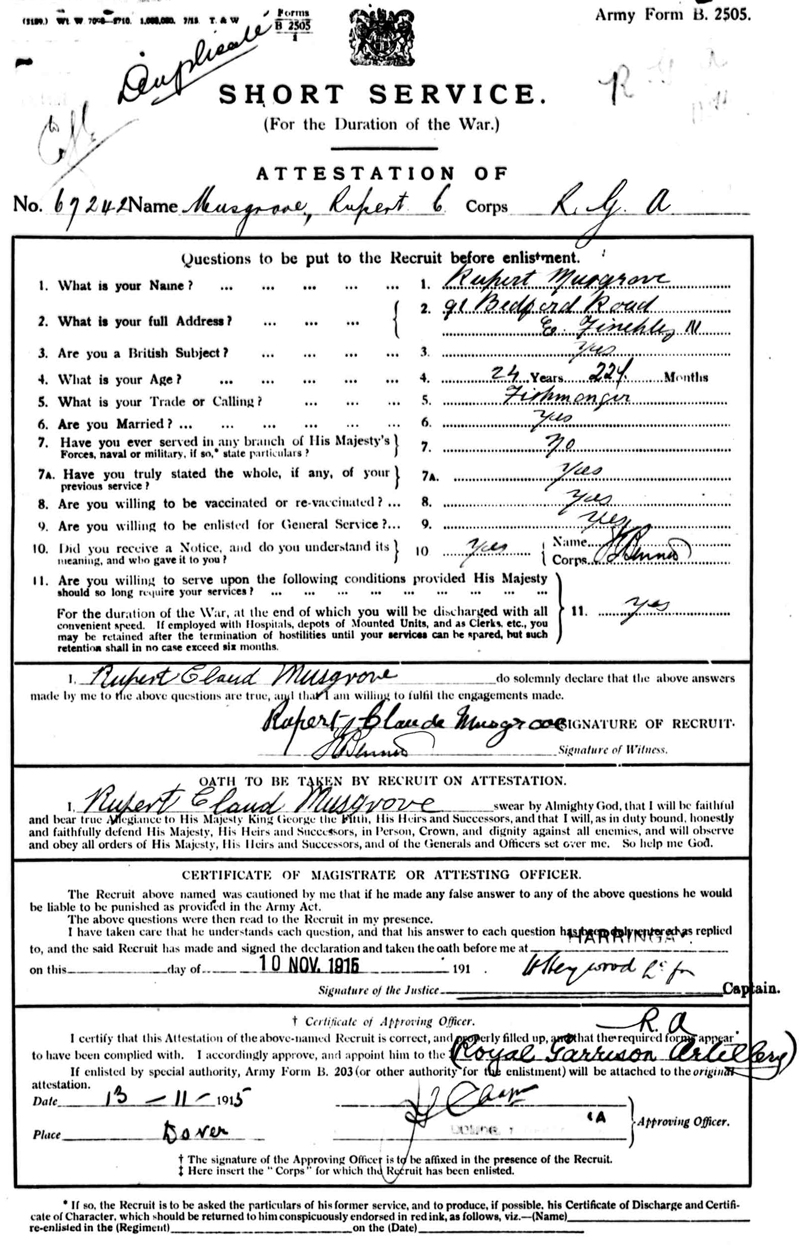 (3189.) Wt. W. 7098—1710. 1,000,000. 7/15. T. & W
Forms
B 2505
1
Army Form B. 2505.
Duplicate
R G A
SHORT SERVICE.
(For the Duration of the War.)
ATTESTATION OF
No. 67242 Name Musgrove, Rupert C Corps R. G. A
Questions to be put to the Recruit before enlistment.
1. What is your Name? ... ... ... ... ... 1. Rupert Musgrove
2. What is your full Address? ... ... ... 2. 91 Bedford Road
E. Finchley N
3. Are you a British Subject? ... ... ... ... 3. Yes
4. What is your Age? ... ... ... ... ... 4. 24 Years 224 Months
5. What is your Trade or Calling? ... ... ... 5. Fishmonger
6. Are you Married? ... ... ... ... ... ... 6. Yes
7. Have you ever served in any branch of His Majesty's
Forces, naval or military, if so,* state particulars? 7. No
7A. Have you truly stated the whole, if any, of your
previous service? 7A. Yes
8. Are you willing to be vaccinated or re-vaccinated? ... 8. Yes
9. Are you willing to be enlisted for General Service?... 9. Yes
10. Did you receive a Notice, and do you understand its
meaning, and who gave it to you? 10 Yes Name
Corps
11. Are you willing to serve upon the following conditions provided His Majesty
should so long require your services? ... ... ... ... ... ... ... ...
For the duration of the War, at the end of which you will be discharged with all
convenient speed. If employed with Hospitals, depots of Mounted Units, and as Clerks, etc., you
may be retained after the termination of hostilities until your services can be spared, but such
retention shall in no case exceed six months.
11. Yes
I, Rupert Claud Musgrove do solemnly declare that the above answers
made by me to the above questions are true, and that I am willing to fulfil the engagements made.
Rupert Claude Musgrove SIGNATURE OF RECRUIT.
Signature of Witness.
OATH TO BE TAKEN BY RECRUIT ON ATTESTATION.
I, Rupert Claud Musgrove swear by Almighty God, that I will be faithful
and bear true Allegiance to His Majesty King George the Fifth, His Heirs and Successors, and that I will, as in duty bound, honestly
and faithfully defend His Majesty, His Heirs and Successors, in Person, Crown, and dignity against all enemies, and will observe
and obey all orders of His Majesty, His Heirs and Successors, and of the Generals and Officers set over me. So help me God.
CERTIFICATE OF MAGISTRATE OR ATTESTING OFFICER.
The Recruit above named was cautioned by me that if he made any false answer to any of the above questions he would
be liable to be punished as provided in the Army Act.
The above questions were then read to the Recruit in my presence.
I have taken care that he understands each question, and that his answer to each question has been duly entered as replied
to, and the said Recruit has made and signed the declaration and taken the oath before me at HARRINGAY
on this day of 10 NOV. 1915 191 .
Signature of the Justice Captain.
† Certificate of Approving Officer.
I certify that this Attestation of the above-named Recruit is correct, and properly filled up, and that the required forms appear
R. A
to have been complied with. I accordingly approve, and appoint him to the Royal Garrison Artillery)
If enlisted by special authority, Army Form B. 203 (or other authority for the enlistment) will be attached to the original
attestation.
Date 13 – 11 – 1915
Place Dover Approving Officer.
† The signature of the Approving Officer is to be affixed in the presence of the Recruit.
‡ Here insert the "Corps" for which the Recruit has been enlisted.
* If so, the Recruit is to be asked the particulars of his former service, and to produce, if possible, his Certificate of Discharge and Certifi-
cate of Character, which should be returned to him conspicuously endorsed in red ink, as follows, viz.—(Name)
re-enlisted in the (Regiment) on the (Date)